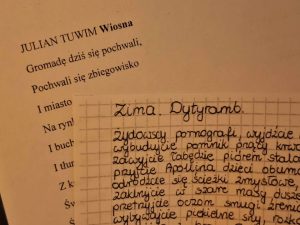 JULIAN TUWIM Wiosna
Gromadę dziś się pochwali,
Pochwali się zbiegowisko
I miasto
Na ryn
I buch
I tłu
Z k
Św
Zima. Dytyramb.
Żydowscy pornografi, wyjdzie
wybudujcie pomnik pracy
zawyje łabędzie piórem stalo
przyjcie Apollina dzieci obum
odrodzcie się ścieżki zmysłowe,
zaklnijcie w szam masy dusze
przetnijcie oczom smugi źreni
piekielne sny, rozko